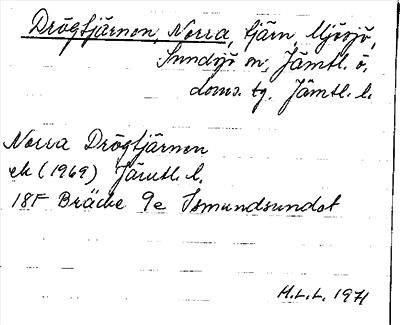 Drögtjärnen, Norra, tjärn, Mjösjö,
Sundsjö sn, Jämtl. ö.
doms. tg. Jämtl. l.
Norra Drögtjärnen
ek (1969) Jämtl. l.
18F Bräcke 9e Ismundsundet
H.L.L. 1971